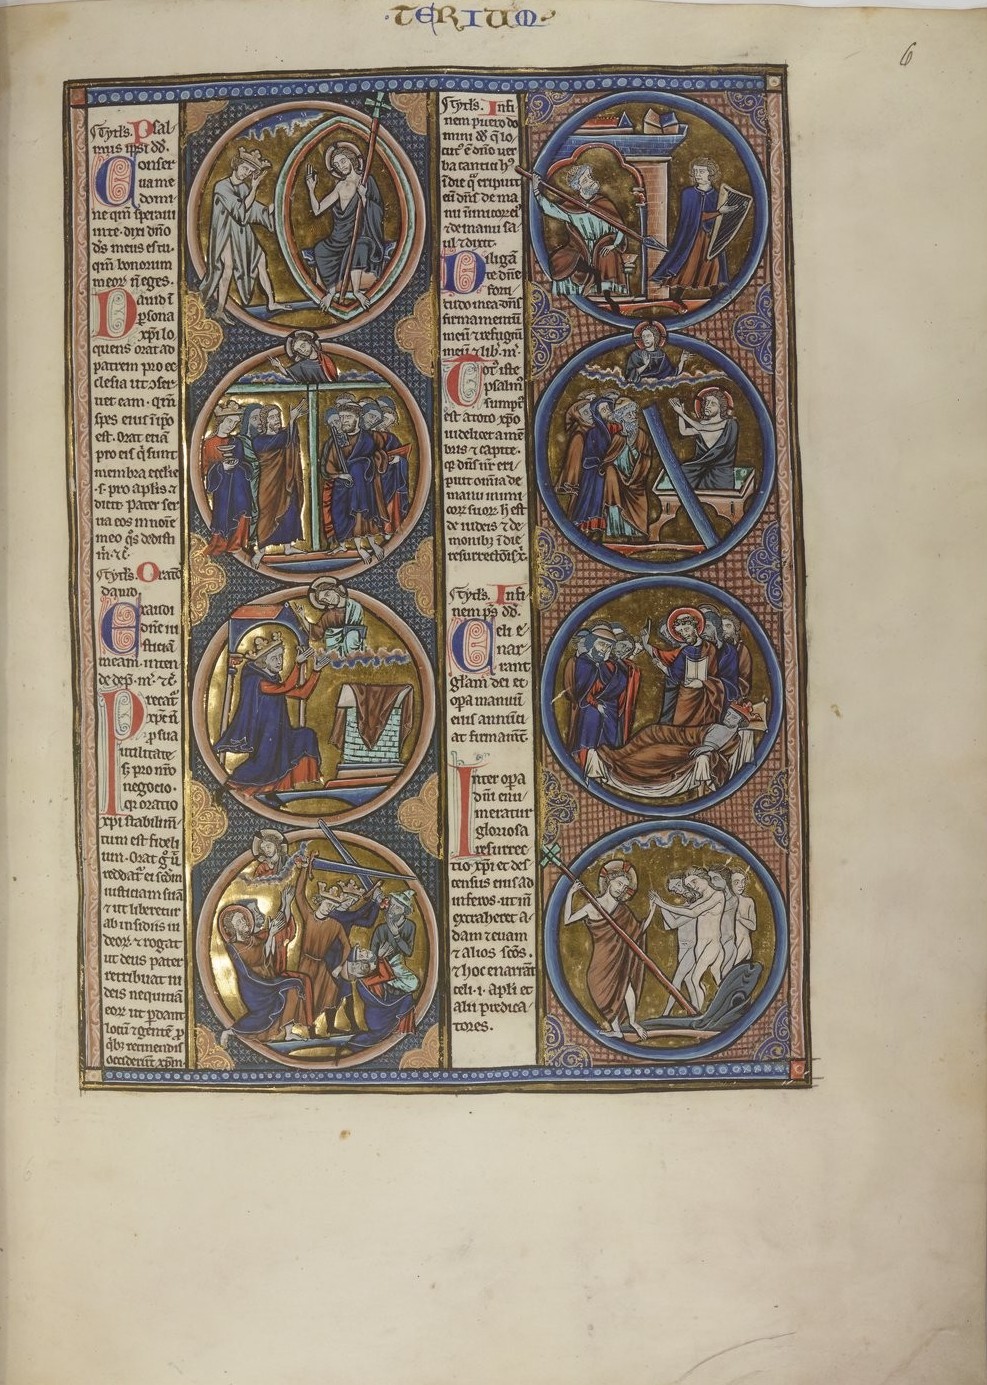 TERIUM
6
Tytl's. Psal/
mus ipsi dd.
Conser
va me
domi
ne qm̄ speravi
in te. dixi dn̄o
d's meus es tu.
qm̄ bonorum
meoꝝ n̄ eges.
David ī
ꝑsona
xp̄i lo
quens orat ad
patrem pro ec
clesia ut ɔser
vet eam. qm̄
spes eius ī ip̄o
est. Orat etiā
pro eis q̄ sunt
membra ecclie
.s. pro apl'is ⁊
dicit. Pater ser
va eos in noīe
meo q̄s dedisti
m̄. ⁊c̄.
Tytl's. Oratio
david.
Exaudi
dn̄e iu
sticiā
meam. inten
de dep̄. m̄. ⁊c̄.
Precat᷑
xp̄c n̄
ꝓ sua
utilitate
s; pro nr̄o
negocio.
qꝛ oratio
xp̄i stabilim̄/
tum est fideli
um. Orat g̊ ū
reddat᷑ ei scd̄m
iusticiam suā
⁊ ut liberetur
ab insidiis iu
deoꝝ. ⁊ rogat
ut deus pater
retribuat iu
deis nequitiā
eoꝝ ut ꝑdant
locū ⁊ gentē ꝓ
q̄b; retinendis
occiderūt xp̄m.
Tytl's. In fi
nem puero do
mini dd̄ q̄ lo/
cut᷑ ē dn̄o ver
ba cantici h'
ī die q̄ eripuit
eū dn̄s de ma
nu īimicoꝝ ei'
⁊ de manu sa/
ul ⁊ dixit.
Diligā
te dn̄e
forti/
tudo mea dn̄s
firmamentū
meū ⁊ refugiū
meū ⁊ lib. m̄.
Tot' iste
psalm'
sumpt'
est a toto xp̄o
videlicet a mē
bris ⁊ capite.
qꝛ dn̄s nr̄ eri/
puit omīa de
manu inimi
coꝝ suoꝝ. h̄ est
de iudeis ⁊ de
monib; ī die
resurrectiōis x̄.
Tytl's. In fi
nem ps̄ dd̄.
Celi e
nar
rant
gl'am dei et
opa manuū
eius annūti
at firmam̄t̄.
Inter opa
dn̄i enu
meratur
gloriosa
resurrec
tio xp̄i et des
census eius ad
inferos. ut in̄
extraheret a/
dam ⁊ evam
⁊ alios sc̄os.
⁊ hoc enarrāt
celi .i. apl'i et
alii predica/
tores.